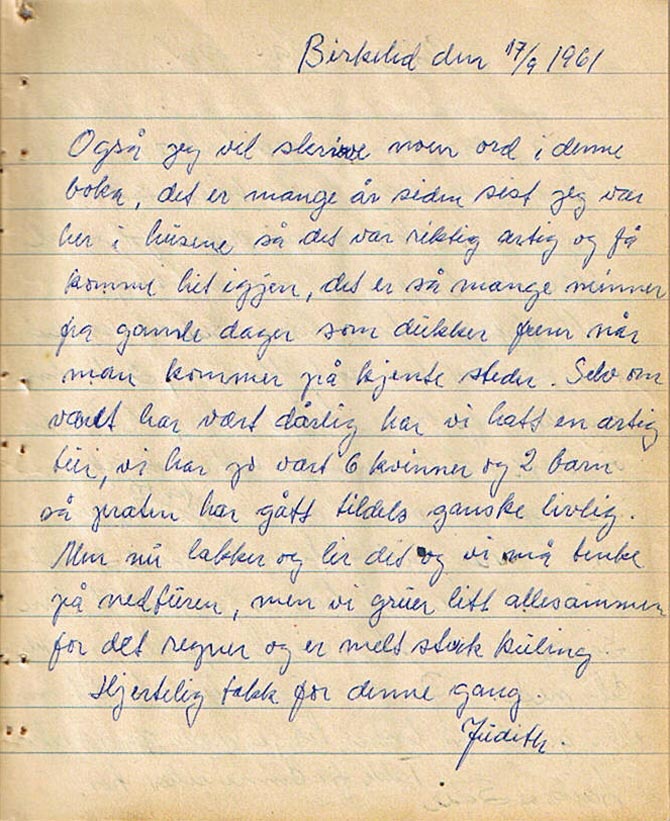 Birkelid den 17/9 1961
Også jeg vil skrive noen ord i denne
boka, det er mange år siden sist jeg var
her i husene så det var riktig artig og få
komme hit igjen, det er så mange minner
fra gamle dager som dukker frem når
man kommer på kjente steder. Selv om
været har vært dårlig har vi hatt en artig
tur, vi har jo vært 6 kvinner og 2 barn
så praten har gått tildels ganske livlig.
Men nu lakker og lir det og vi må tenke
på nedturen, men vi gruer litt allesammen
for det regner og er meldt sterk kuling.
Hjertelig takk for denne gang.
Judith.